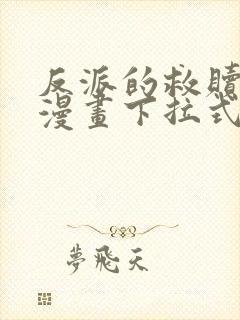 反派的救贖
漫畫下拉式
夢飛天